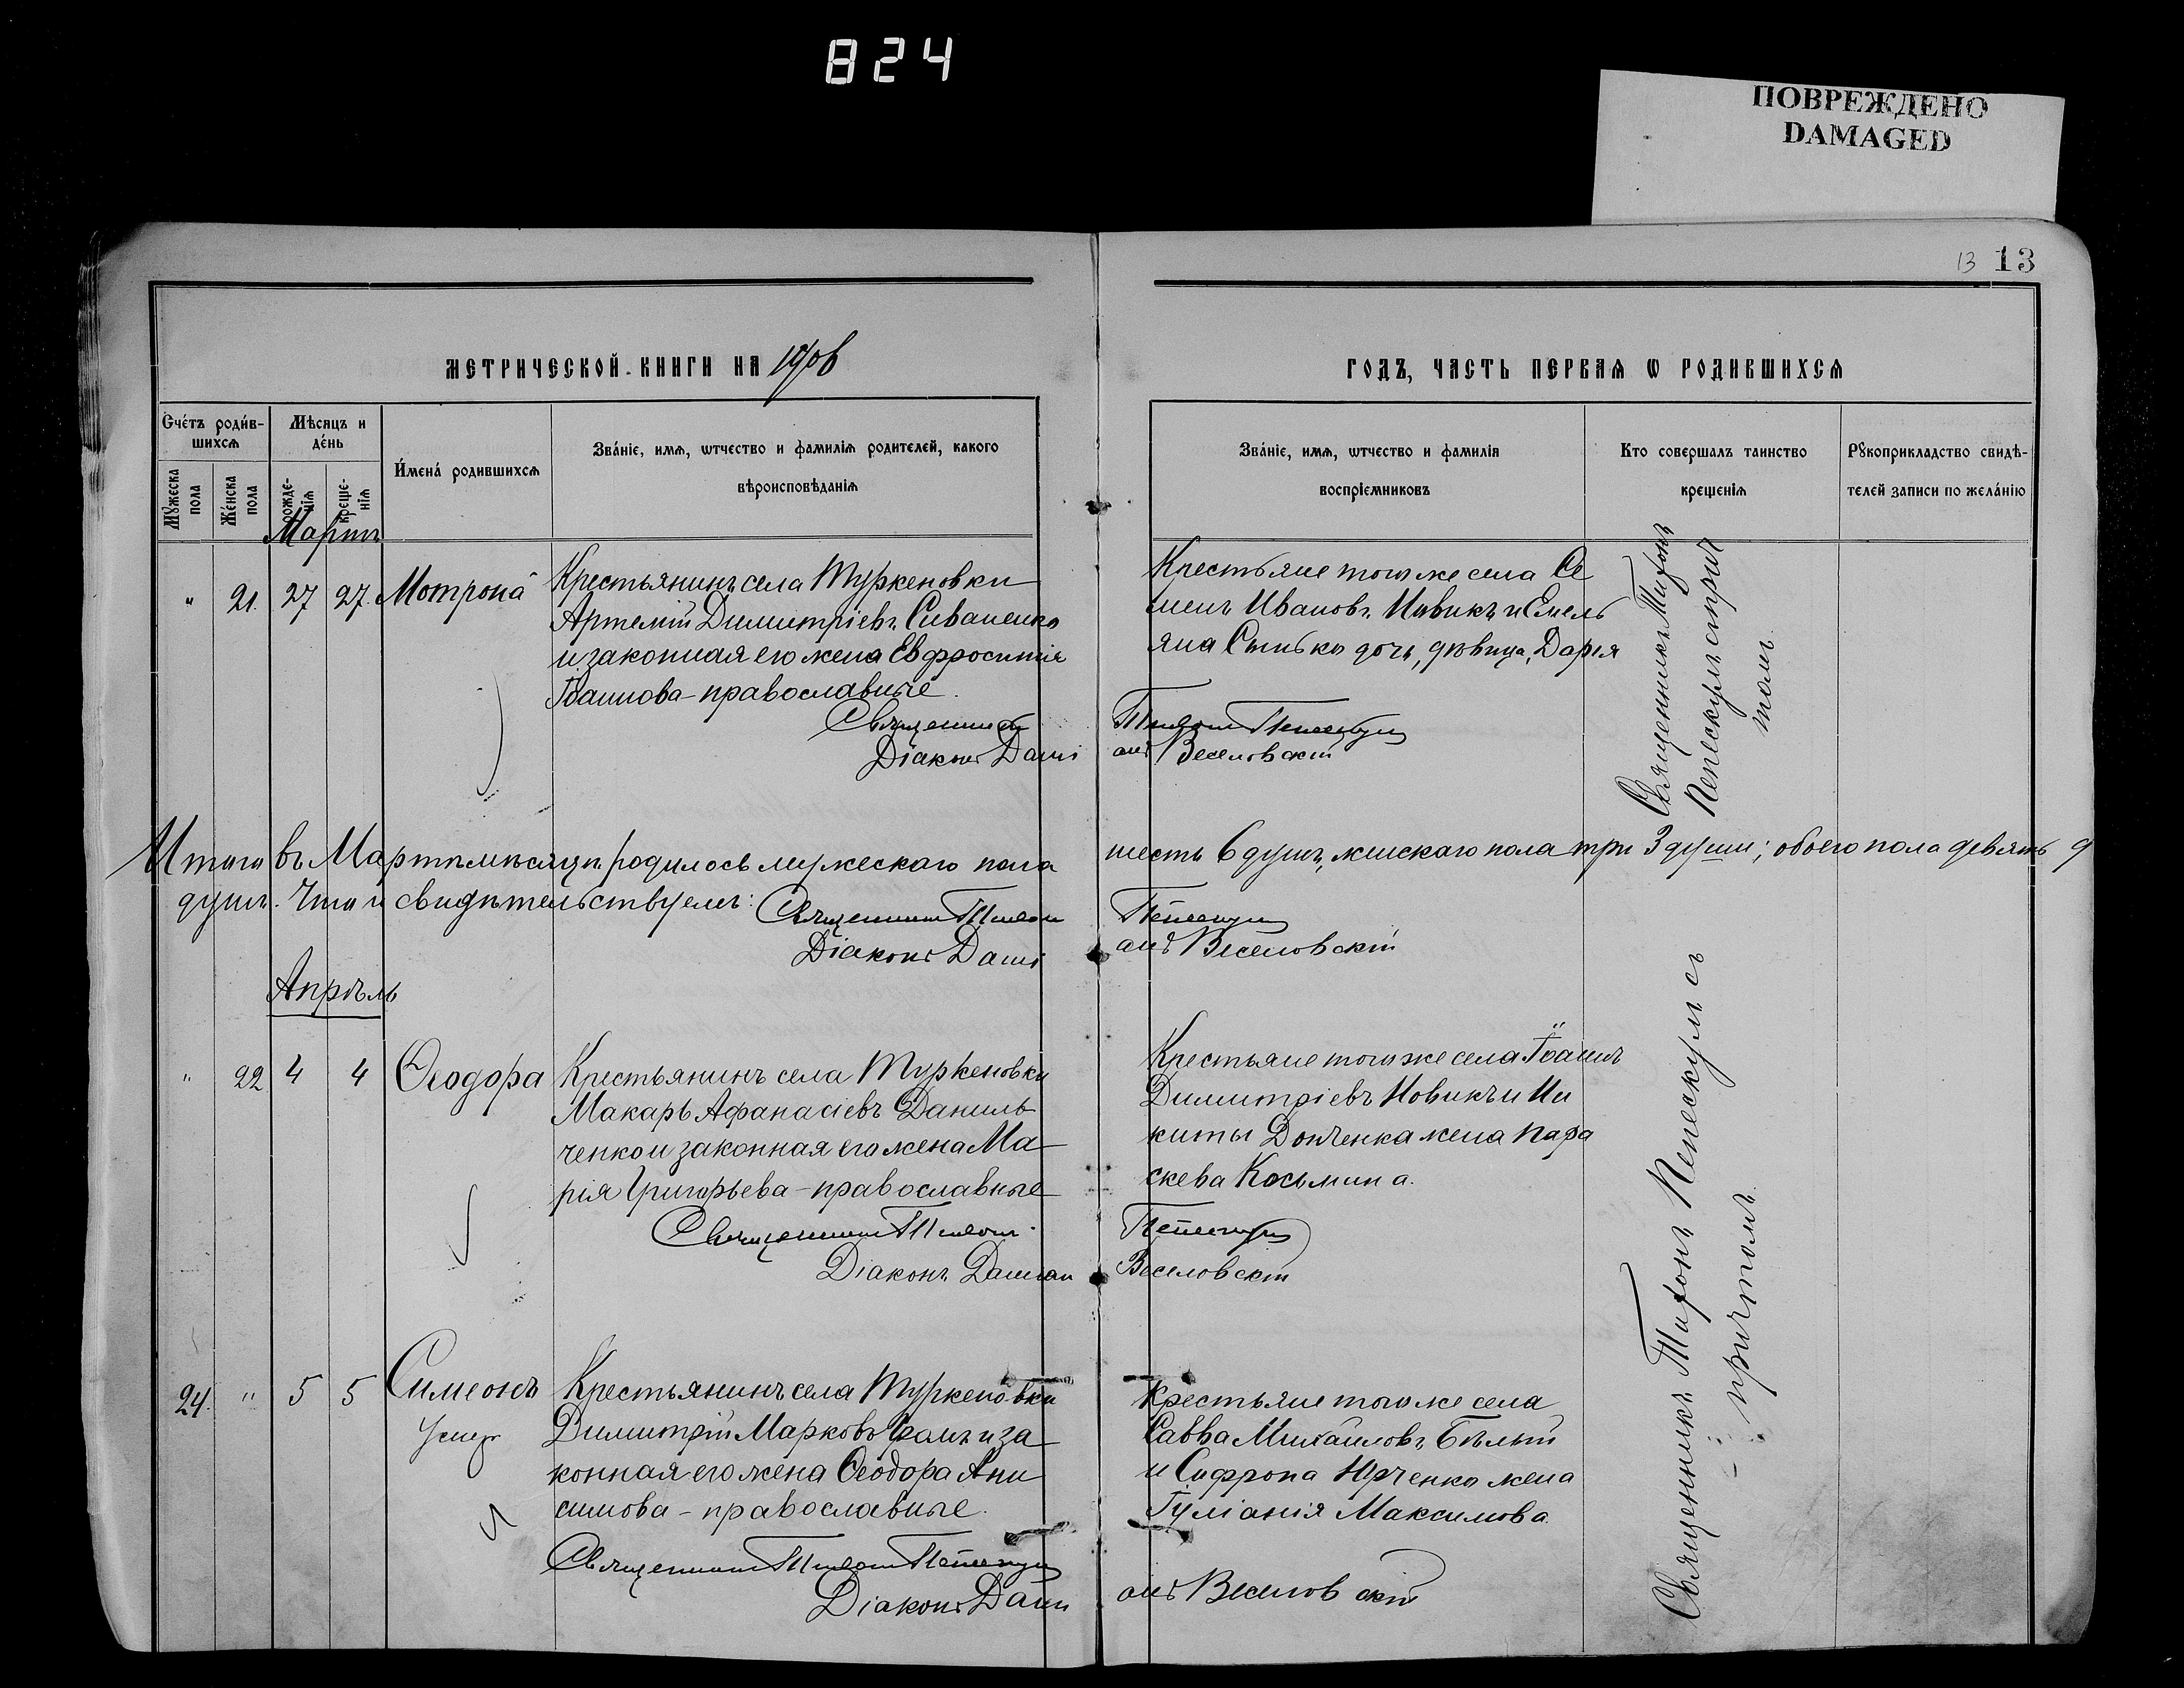 824
ПОВРЕЖДЕНО
DAMAGED
13 13
МЕТРИЧЕСКОЙ КНИГИ НА 1906
ГОДЪ, ЧАСТЬ ПЕРВАѦ Ѡ РОДИВШИХСѦ
Счéтъ роди́вшихсѧ
Мѣсяцъ и дéнь
И́менá родившихсѧ
Звáніе, имѧ, ѡтчество и фамиліѧ родителей, какого
вѣроисповѣданіѧ
Мꙋжеска пола
Жéнска пола
рожденіѧ
крещеніѧ
Звáніе, имѧ, ѡтчество и фамилія
воспріемниковъ
Кто совершалъ таинство
крещеніѧ
Рꙋкоприкладство свидѣ-
телей записи по желáнію
Мартъ
" 21. 27 27. Мотрона
Крестьянинъ села Туркеновки
Артемій Димитріевъ Сиваненко
и законная его жена Евфросинія
Іоаннова - православные.
Священникъ
Діаконъ Даміанъ Веселовскій
Крестьяне того же села Се
менъ Ивановъ Новикъ и Емель
яна Сынько дочь, дѣвица, Дарія
Священникъ Тихонъ
Пепескулъ съ прич
томъ.
Итого въ Мартѣ мѣсяцѣ родилось мужескаго пола шесть 6 душъ, женскаго пола три 3 души; обоего пола девять 9
душъ. Что и свидѣтельствуемъ: Священникъ Тихонъ Пепескулъ
Діаконъ Даміанъ Веселовскій
Апрѣль
" 22 4 4 Ѳеодора
Крестьянинъ села Туркеновки
Макарь Афанасіевъ Даниль
ченко и законная его жена Ма-
рія Григорьева - православные
Священникъ Тихонъ Пепескулъ
Діаконъ Даміан Веселовскій
Крестьяне того же села Іоаннъ
Димитріевъ Новикъ и Ни
киты Донченка жена Пара
скева Косьмина.
Священникъ Тихонъ Пепескулъ съ
причтомъ.
24. " 5 5 Симеонъ
Умеръ
Крестьянинъ села Туркеновки
Димитрій Марковъ и за
конная его жена Ѳеодора Ани
симова - православные.
Священникъ Тихонъ Пепескулъ
Діаконъ Даміанъ Веселовскій
Крестьяне того же села
Савва Михаиловъ Бѣлый
и Софрона Юрченка жена
Іуліанія Максимова.